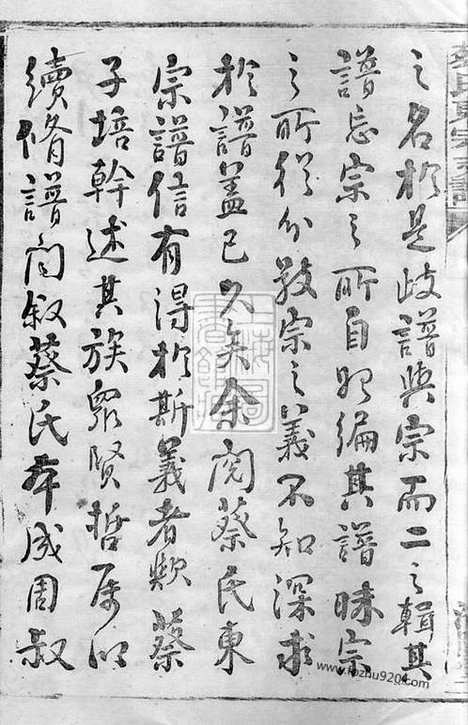 蔡氏東宗支譜
之名於是歧譜與宗而二之輯其
譜忘宗之所自始編其譜昧宗
之所從分敬宗之義不知深求
於譜蓋已久矣余閱蔡氏東
宗譜信有得於斯義者歟蔡
子培幹述其族眾賢哲屬以
續脩譜問叙蔡氏本成周叔
www.fozhu920.com